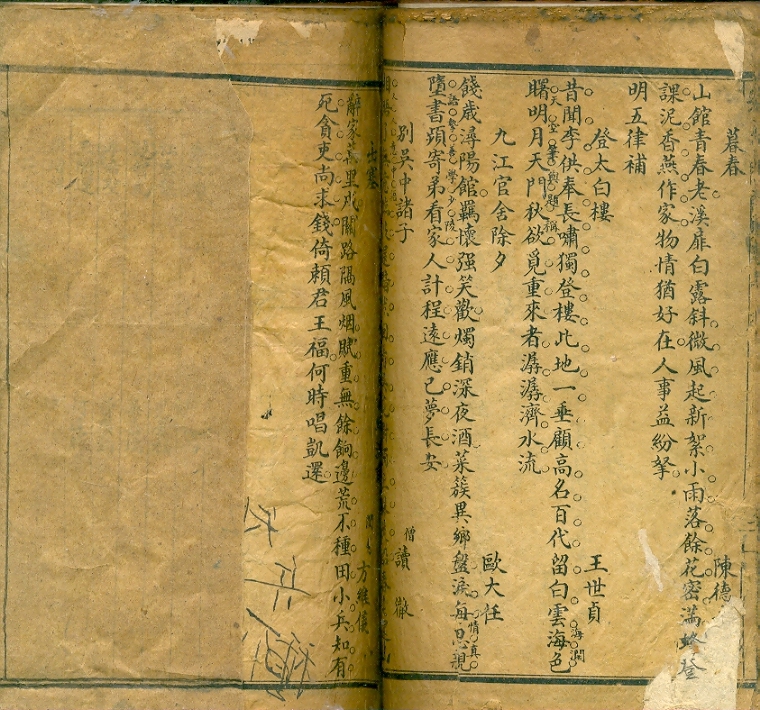 暮春
陳德
山館青春老溪扉白露斜微風起新絮小雨落餘花密滿蜂登
課泥香燕作家物情猶好在人事益紛拏
明五律補
登太白樓
王世貞
昔聞李供奉長嘯獨登樓此地一垂顧高名百代留白雲海色
曙明月天門秋欲覓重來者潺潺濟水流
九江官舍除夕
歐大任
餞歲潯陽館羈懷强笑歡燭銷深夜酒菜簇異鄉盤淚每思親
墮書頻寄弟看家人計程遠應已夢長安
別吳中諸子
僧讀徹
出塞
方維儀
辭家萬里戍關路隔風烟賦重無餘餉邊荒不種田小兵知有
死貪吏尚求錢倚賴君王福何時唱凱還